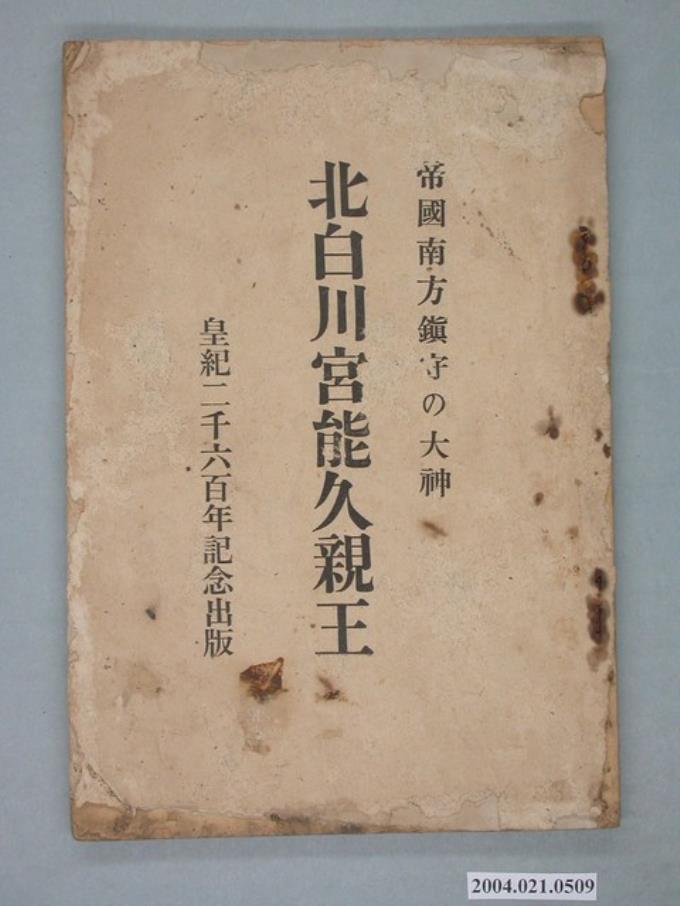 帝國南方鎭守の大神
北白川宮能久親王
皇紀二千六百年記念出版
2004.021.0509